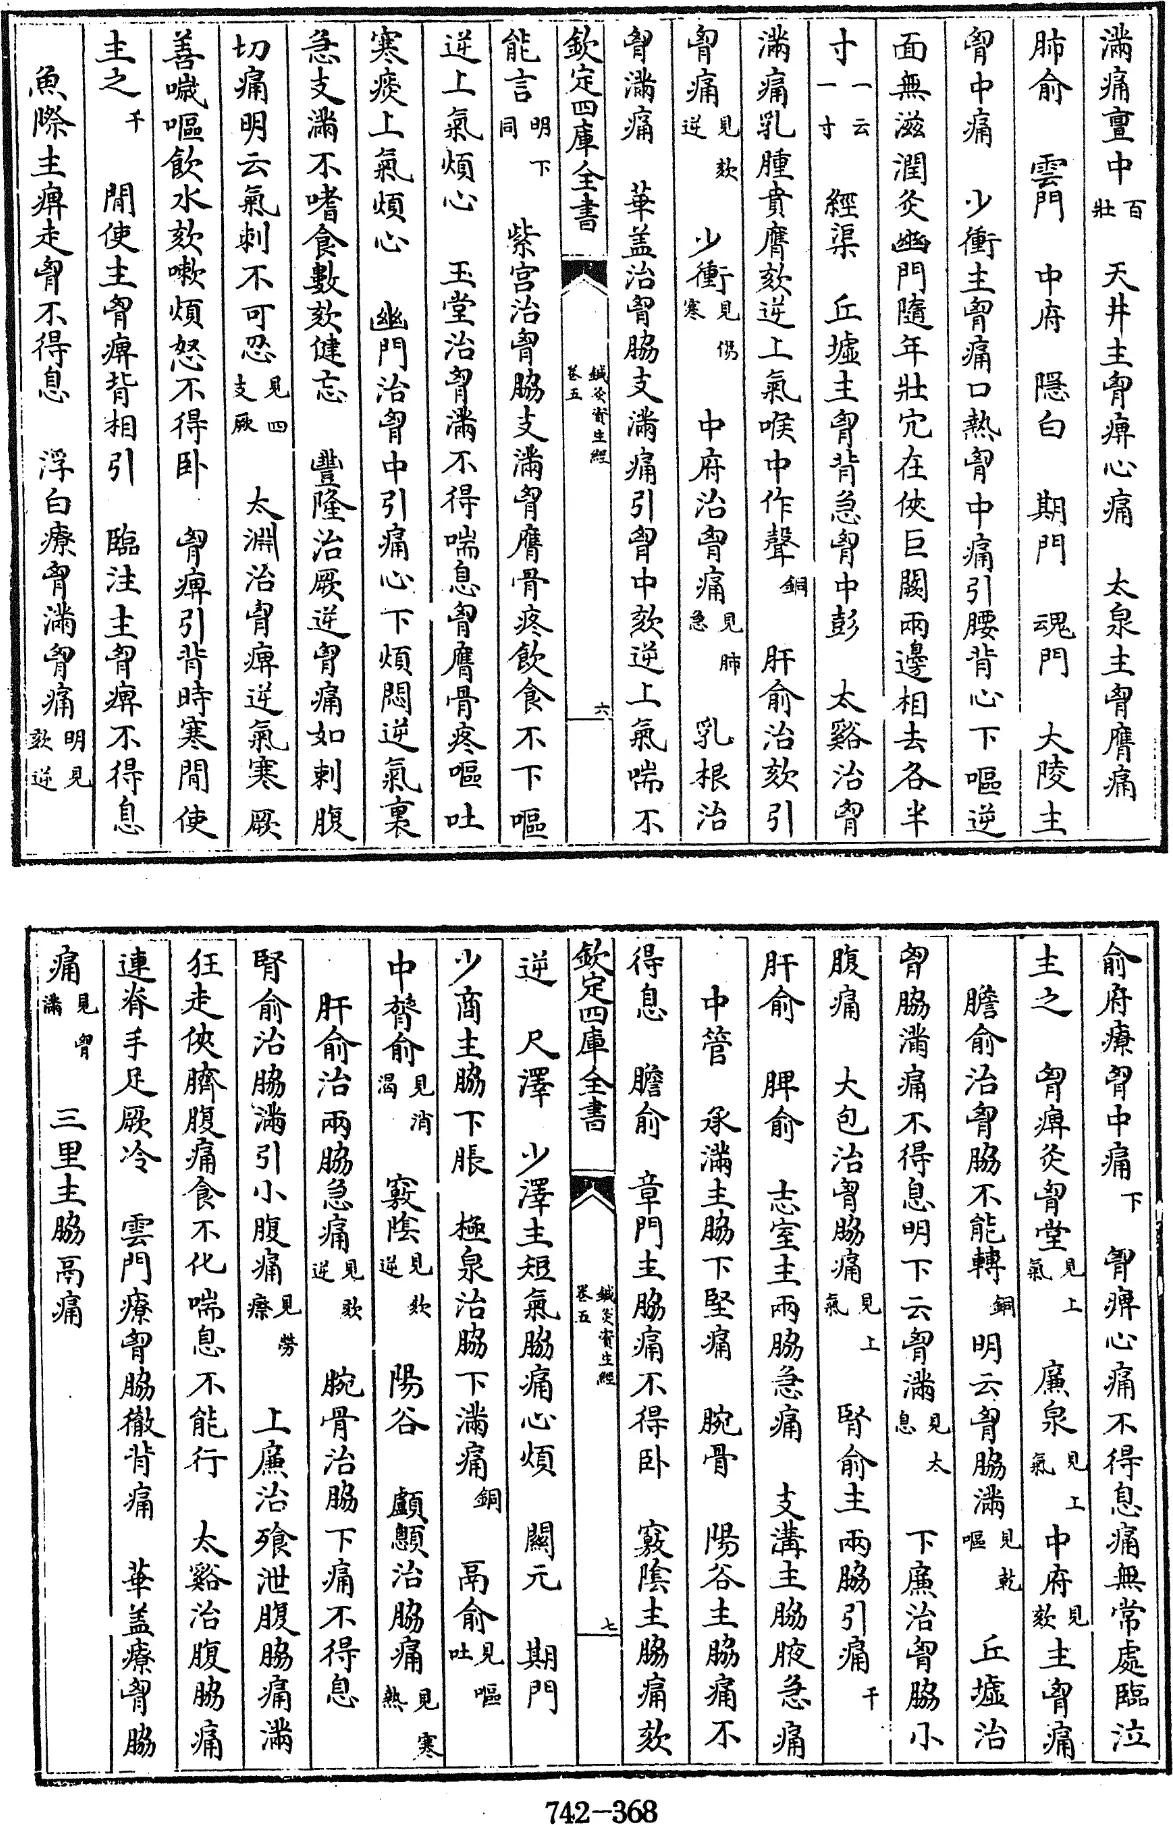 滿痛亶中百壯 天井主胷痹心痛 太泉主胷膺痛
肺俞 雲門 中府 隱白 期門 魂門 大陵主
胷中痛 少衝主胷痛口熱胷中痛引腰背心下嘔逆
面無滋潤灸幽門隨年壯穴在俠巨闕兩邊相去各半
寸一云一寸 經渠 丘墟主胷背急胷中彭 太谿治胷
滿痛乳腫賁膺欬逆上氣喉中作聲銅 肝俞治欬引
胷痛見欬逆 少衝見傷寒 中府治胷痛見肺急 乳根治
胷滿痛 華盖治胷脇支滿痛引胷中欬逆上氣喘不
欽定四庫全書 鍼灸資生經卷五 六
能言明下同 紫宮治胷脇支滿胷膺骨疼飲食不下嘔
逆上氣煩心 玉堂治胷滿不得喘息胷膺骨疼嘔吐
寒痰上氣煩心 幽門治胷中引痛心下煩悶逆氣裏
急支滿不嗜食數欬健忘 豐隆治厥逆胷痛如刺腹
切痛明云氣刺不可忍見四支厥 太淵治胷痹逆氣寒厥
善噦嘔飲水欬嗽煩怒不得卧 胷痹引背時寒間使
主之千 間使主胷痹背相引 臨注主胷痹不得息
魚際主痹走胷不得息 浮白療胷滿胷痛明見欬逆
俞府療胷中痛下 胷痹心痛不得息痛無常處臨泣
主之 胷痹灸胷堂見上氣 廉泉見上氣 中府見欬主胷痛
膽俞治胷脇不能轉銅 明云胷脇滿見乾嘔 丘墟治
胷脇滿痛不得息明下云胷滿見太息 下廉治胷脇小
腹痛 大包治胷脇痛見上氣 腎俞主兩脇引痛千
肝俞 脾俞 志室主兩脇急痛 支溝主脇腋急痛
中管 承滿主脇下堅痛 腕骨 陽谷主脇痛不
得息 膽俞 章門主脇痛不得卧 竅陰主脇痛欬
欽定四庫全書 鍼灸資生經卷五 七
逆 尺澤 少澤主短氣脇痛心煩 關元 期門
少商主脇下脹 極泉治脇下滿痛銅 鬲俞見嘔吐
中膂俞見消渴 竅陰見欬逆 陽谷 顱顖治脇痛見寒熱
肝俞治兩脇急痛見欬逆 腕骨治脇下痛不得息
腎俞治脇滿引小腹痛見勞瘵 上廉治飱泄腹脇痛滿
狂走俠臍腹痛食不化喘息不能行 太谿治腹脇痛
連脊手足厥冷 雲門療胷脇徹背痛 華盖療胷脇
痛見胷滿 三里主脇鬲痛
742-368